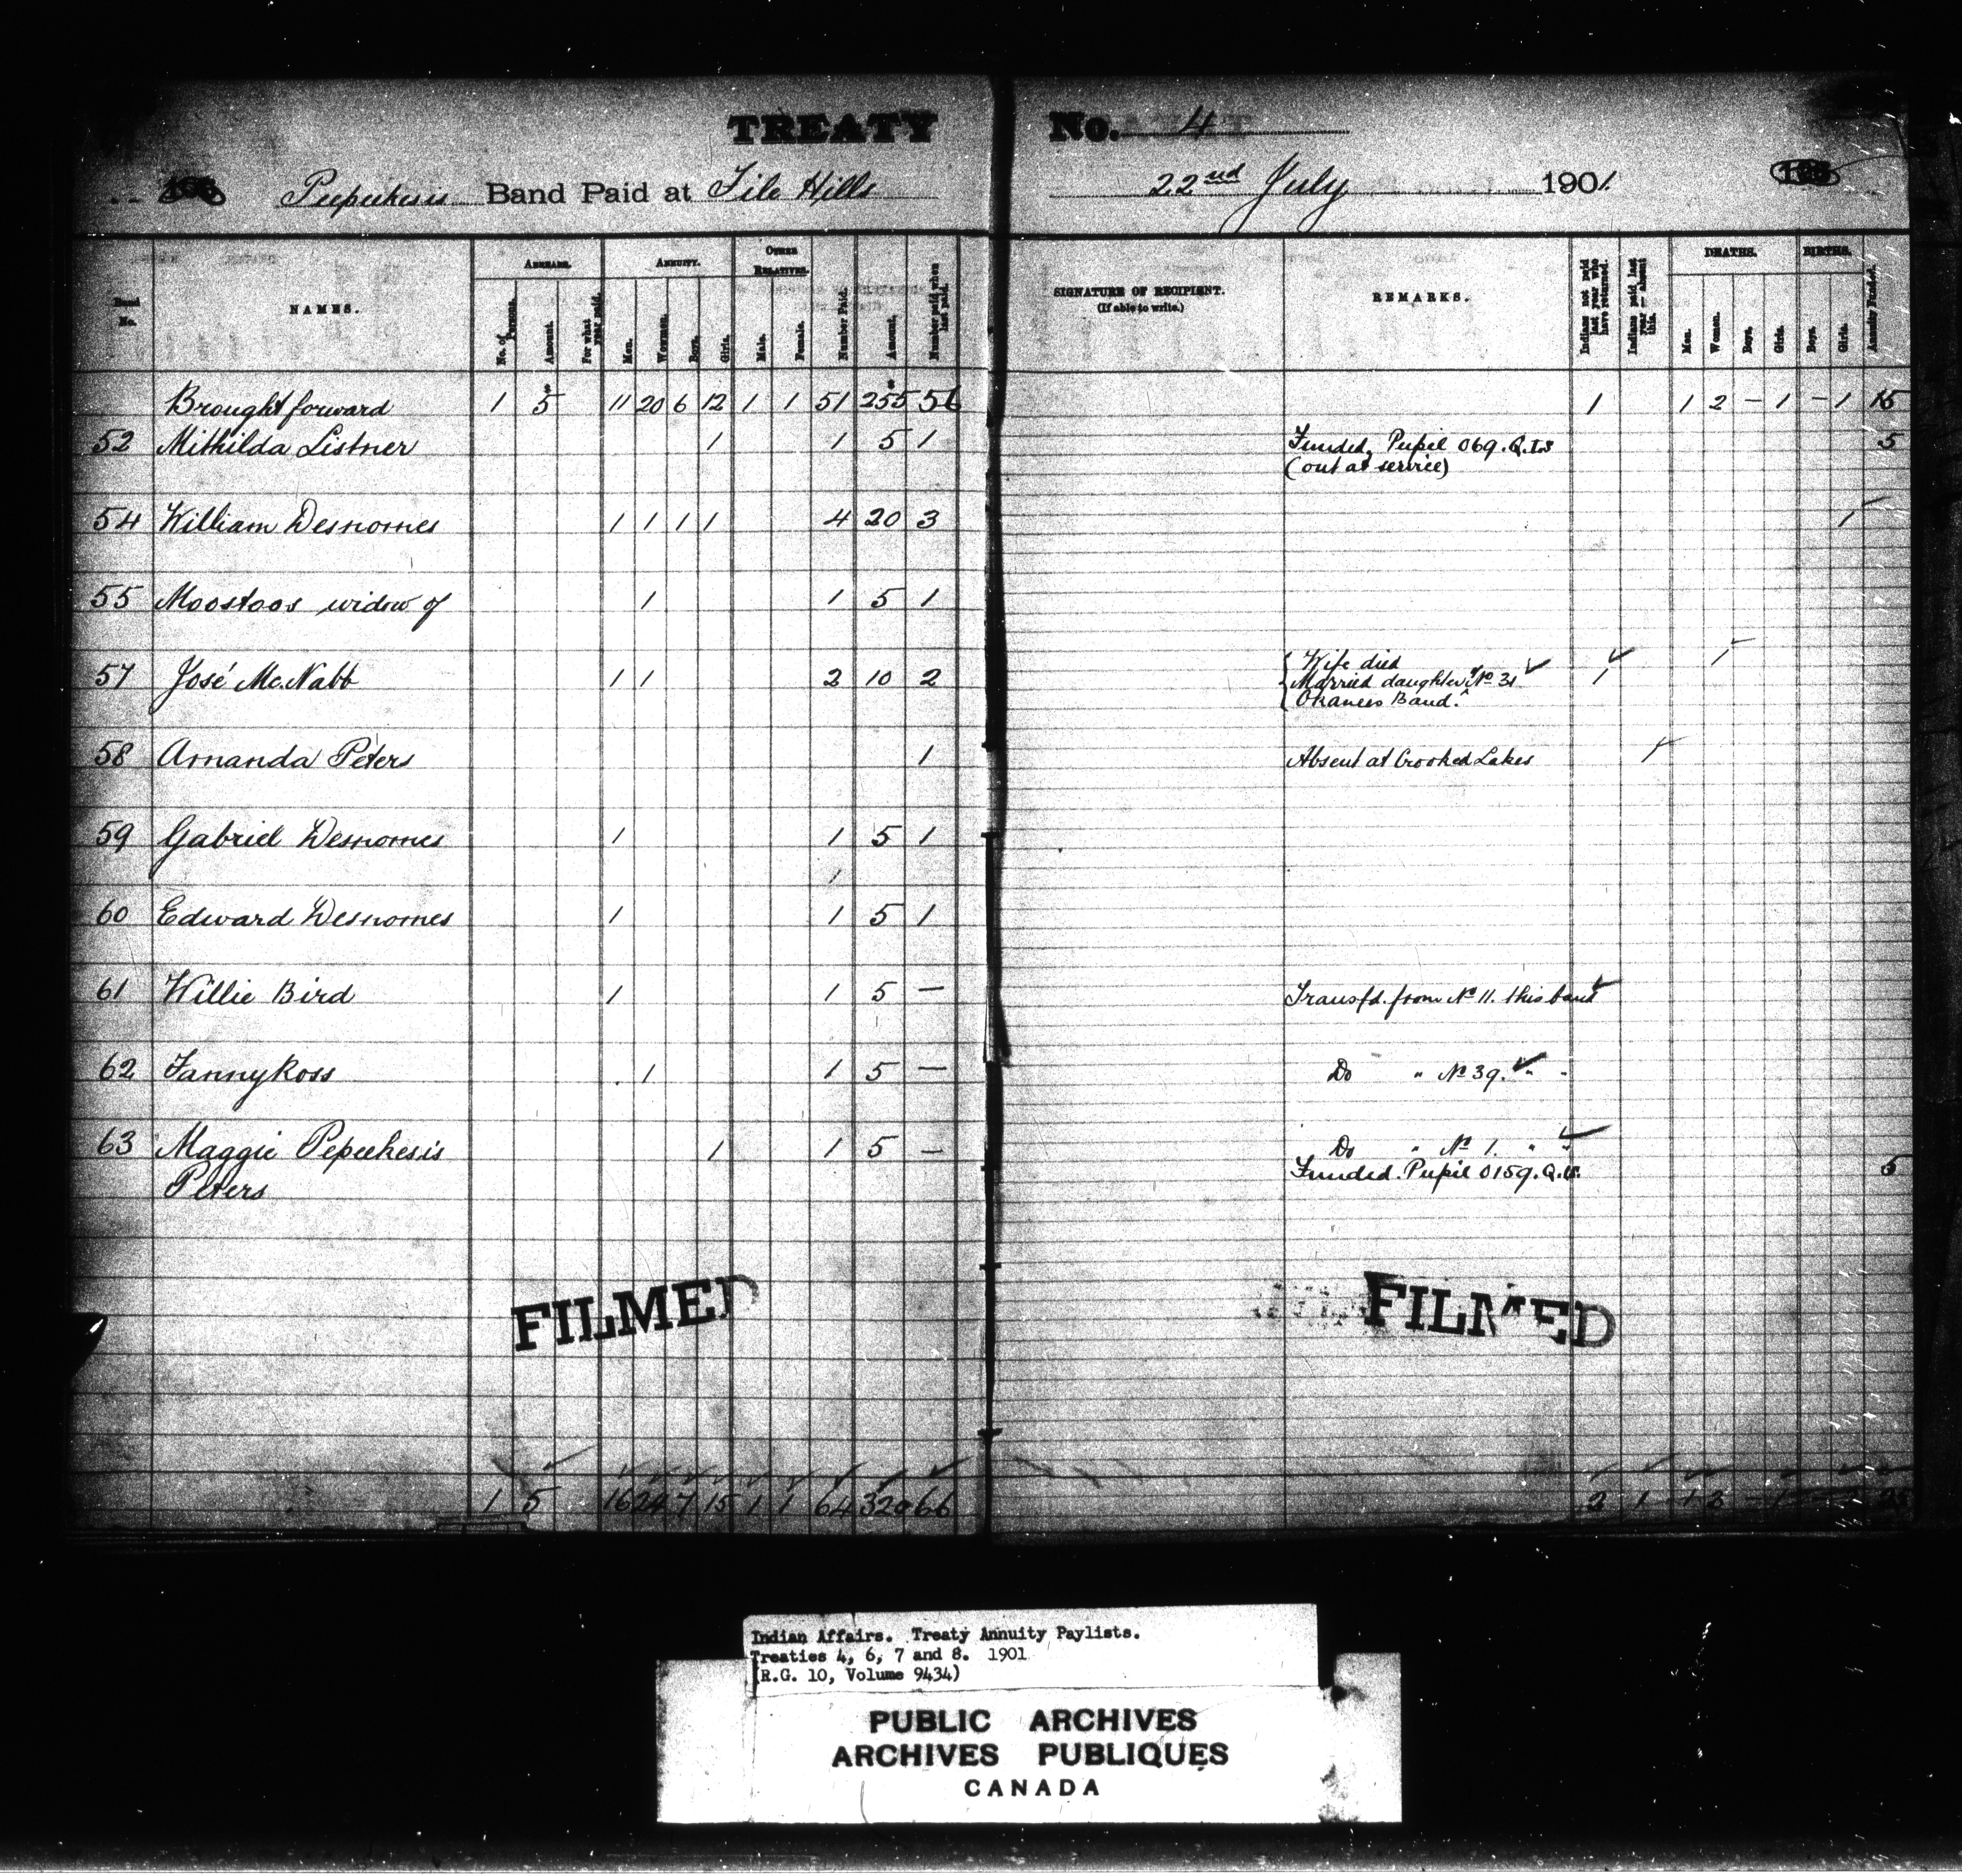 TREATY No. 4
Peepeekesis Band Paid at File Hills 22nd July 1901
Paid No.
NAMES.
ARREARS.
No. of Persons.
Amount.
For what year paid.
ANNUITY.
Men.
Women.
Boys.
Girls.
OTHER RELATIVES.
Male.
Female.
Number Paid.
Amount.
Number paid when last paid.
SIGNATURE OF RECIPIENT.
(If able to write.)
REMARKS.
Indians not paid last year who have returned.
Indians paid last year — absent this.
DEATHS.
Men.
Women.
Boys.
Girls.
BIRTHS.
Boys.
Girls.
Annuity Funded.
Brought forward 1 5 11 20 6 12 1 1 51 255 56 1 1 2 – 1 – 1 15
52 Mithilda Listner 1 1 5 1 Funded, Pupil 069. Q.I.S 5
(out at service)
54 William Desnomes 1 1 1 1 4 20 3 1
55 Moostoos widow of 1 1 5 1
57 José McNabb 1 1 2 10 2 Wife died 1 1
Married daughter of No 31
Okanees Band.
58 Amanda Peters 1 Absent at Crooked Lakes 1
59 Gabriel Desnomes 1 1 5 1
60 Edward Desnomes 1 1 5 1
61 Willie Bird 1 1 5 — Transfd. from No 11. this band
62 Fanny Ross 1 1 5 — Do " No 39. " "
63 Maggie Pepeekesis 1 1 5 — Do " No 1. " "
Peters Funded. Pupil 0159. Q. 5
FILMED FILMED
1 5 16 24 7 15 1 1 64 320 66 2 1 1 3 – 1 –
Indian Affairs. Treaty Annuity Paylists.
Treaties 4, 6, 7 and 8. 1901
(R.G. 10, Volume 9434)
PUBLIC ARCHIVES
ARCHIVES PUBLIQUES
CANADA